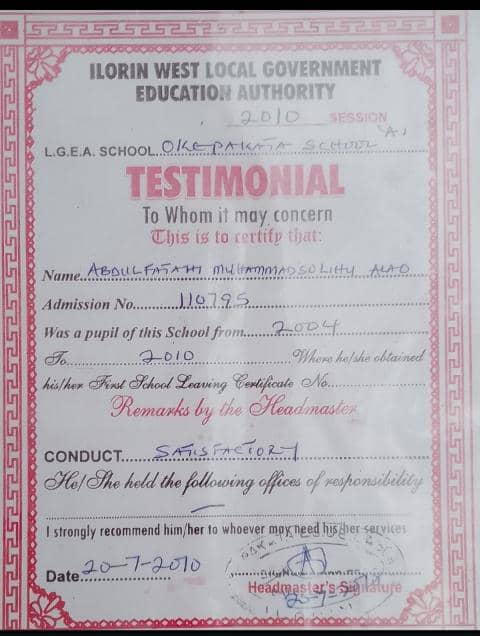 ILORIN WEST LOCAL GOVERNMENT
EDUCATION AUTHORITY
2010 SESSION
L.G.E.A. SCHOOL OKEPAKATA SCHOOL 'A'
TESTIMONIAL
To Whom it may concern
This is to certify that:
Name ABDULFATAHI MUHAMMADSOLIHU ALAO
Admission No. 110795
Was a pupil of this School from 2004
To 2010 Where he/she obtained
his/her First School Leaving Certificate No.
Remarks by the Headmaster
CONDUCT SATISFACTORY
He/She held the following offices of responsibility
I strongly recommend him/her to whoever may need his/her services
Date 20-7-2010
Headmaster's Signature
20-7-2010